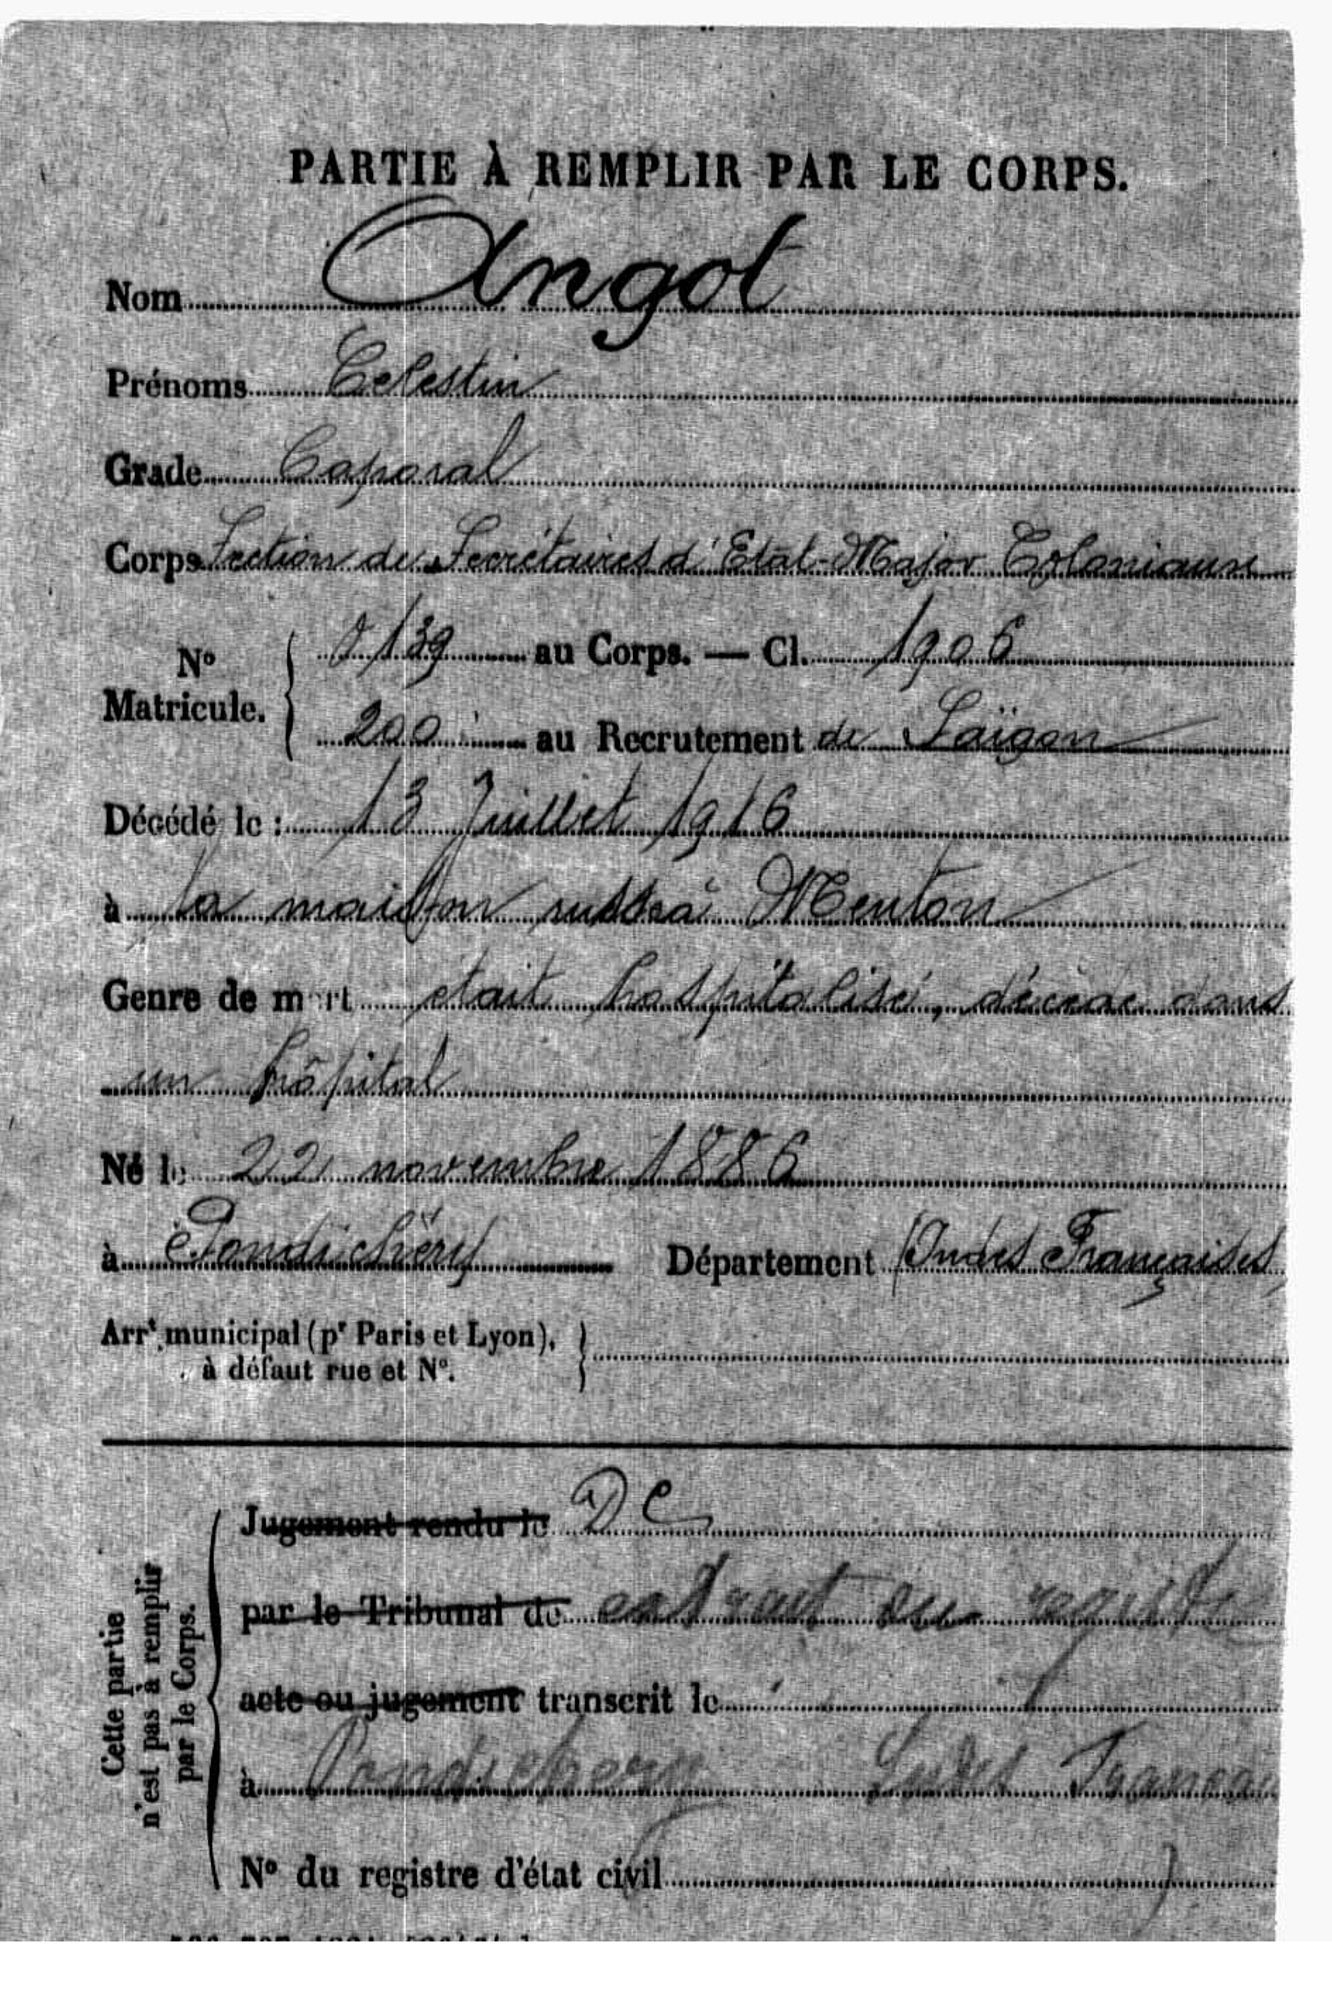 PARTIE À REMPLIR PAR LE CORPS.
Nom Angot
Prénoms Celestin
Grade Caporal
Corps Section de Secrétaires d'Etat-Major Coloniaux
N° Matricule. 139 au Corps. — Cl. 1906
200 au Recrutement de Saïgon
Décédé le : 13 Juillet 1916
à la maison russe à Menton
Genre de mort était hospitalisé, décédé dans
un hôpital
Né le 22 novembre 1886
à Pondichéry Département (Indes Françaises)
Arrt municipal (pr Paris et Lyon),
à défaut rue et N°.
Cette partie
n'est pas à remplir
par le Corps.
Jugement rendu le DC
par le Tribunal de extrait du registre
acte ou jugement transcrit le
à Pondichery Indes
N° du registre d'état civil